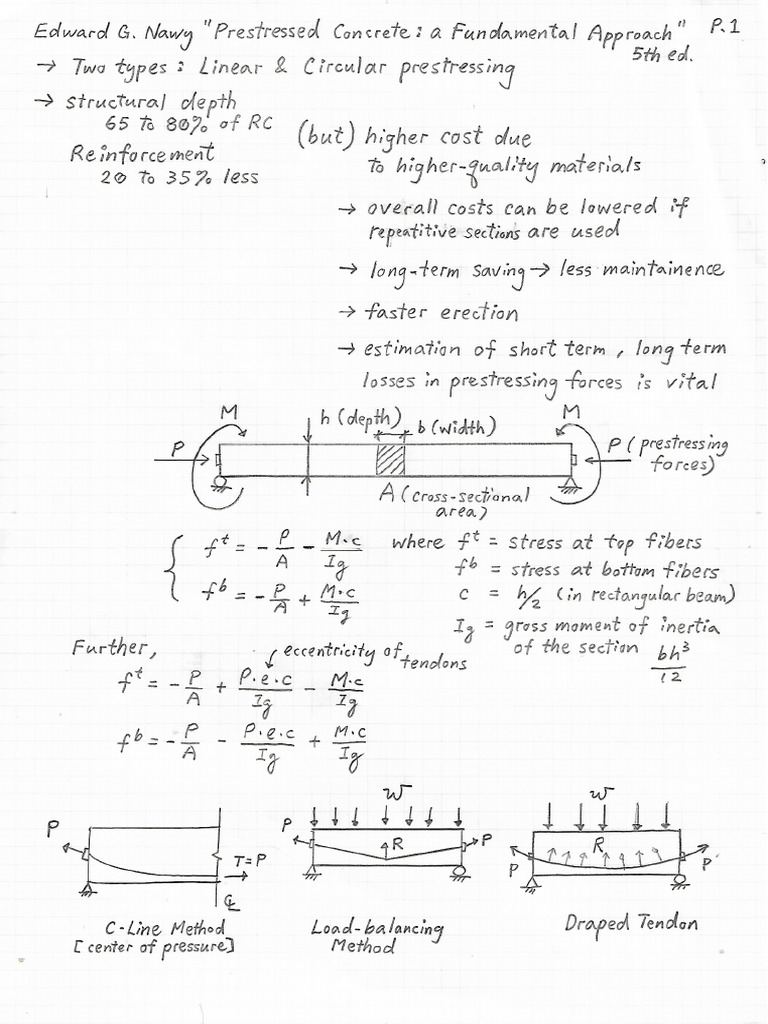 Edward G. Nawy "Prestressed Concrete: a Fundamental Approach" P.1
5th ed.
→ Two types: Linear & Circular prestressing
→ structural depth
65 to 80% of RC
Reinforcement
20 to 35% less
(but) higher cost due
to higher-quality materials
→ overall costs can be lowered if
repeatitive sections are used
→ long-term saving → less maintainence
→ faster erection
→ estimation of short term, long term
losses in prestressing forces is vital
M h (depth) b (width) M
P P (prestressing
forces)
A (cross-sectional
area)
f^t = - P/A - M·c/Ig
f^b = - P/A + M·c/Ig
where f^t = stress at top fibers
f^b = stress at bottom fibers
c = h/2 (in rectangular beam)
Ig = gross moment of inertia
of the section bh³/12
Further,
eccentricity of
tendons
f^t = - P/A + P·e·c/Ig - M·c/Ig
f^b = - P/A - P·e·c/Ig + M·c/Ig
P T=P ℄
C-Line Method
[center of pressure]
W
P R P
Load-balancing
Method
W
P R P
Draped Tendon